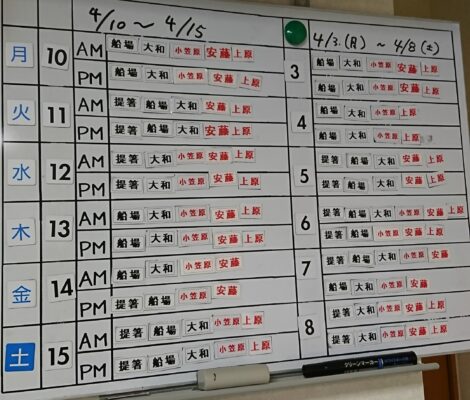 4/10 ～ 4/15
4/3.(月) ～ 4/8(土)
月 10 AM 船場 大和 小笠原 安藤 上原
PM 船場 大和 小笠原 安藤 上原
火 11 AM 提箸 船場 大和 安藤 上原
PM 提箸 船場 大和 安藤 上原
水 12 AM 提箸 大和 小笠原 安藤 上原
PM 提箸 大和 小笠原 安藤 上原
木 13 AM 船場 大和 小笠原 安藤 上原
PM 船場 大和 小笠原 安藤 上原
金 14 AM 船場 大和 小笠原 安藤
PM 提箸 船場 小笠原 安藤
土 15 AM 提箸 船場 大和 小笠原 上原
PM 提箸 船場 大和 小笠原 上原
3 船場 大和 小笠原 安藤 上原
船場 大和 小笠原 安藤 上原
4 船場 大和 小笠原 上原
船場 大和 小笠原 上原
5 提箸 船場 大和 安藤 上原
提箸 船場 大和 安藤 上原
6 提箸 船場 大和 小笠原 安藤 上原
提箸 船場 大和 小笠原 安藤 上原
7 船場 大和 小笠原 安藤
提箸 船場 大和 小笠原 安藤
8 提箸 船場 大和 小笠原 安藤 上原
提箸 船場 大和 小笠原 安藤 上原